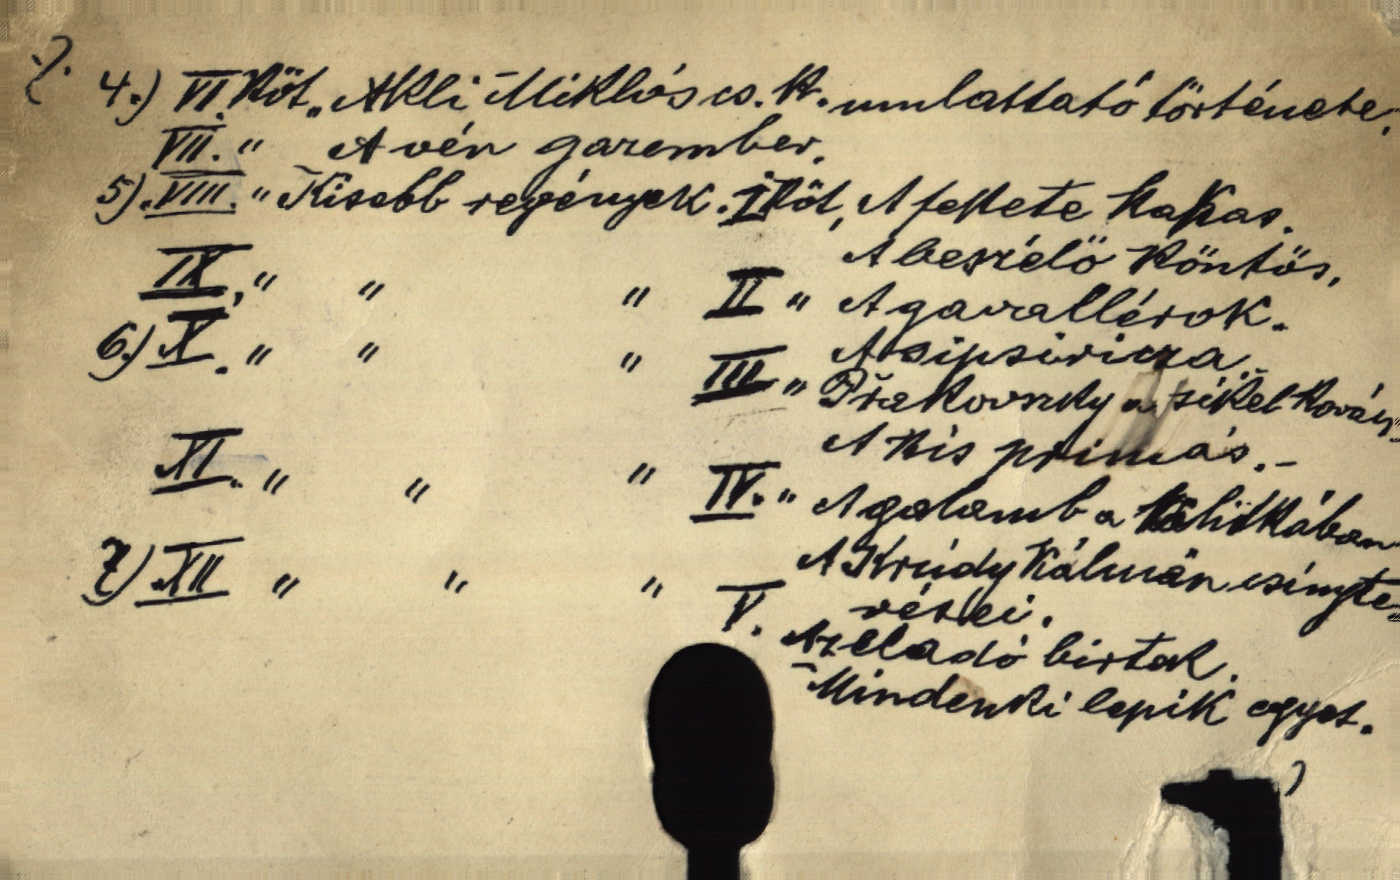 2.
4.) VI. Köt. Akli Miklós cs. k. mulattató története,
VII. " A vén gazember.
5). VIII. " Kisebb regények. I Köt, A fekete kakas.
A beszélő köntös,
IX, " " " II " A gavallérok.
6.) X. " " " A sipsiricza
III " Prakovszky a siket kovács
A kis primás. –
XI. " " " IV. " A galamb a kalitkában
A Krúdy Kálmán csínyte-
7.) XII " " " V. vései.
Az eladó birtok.
Mindenki lépik egyet.